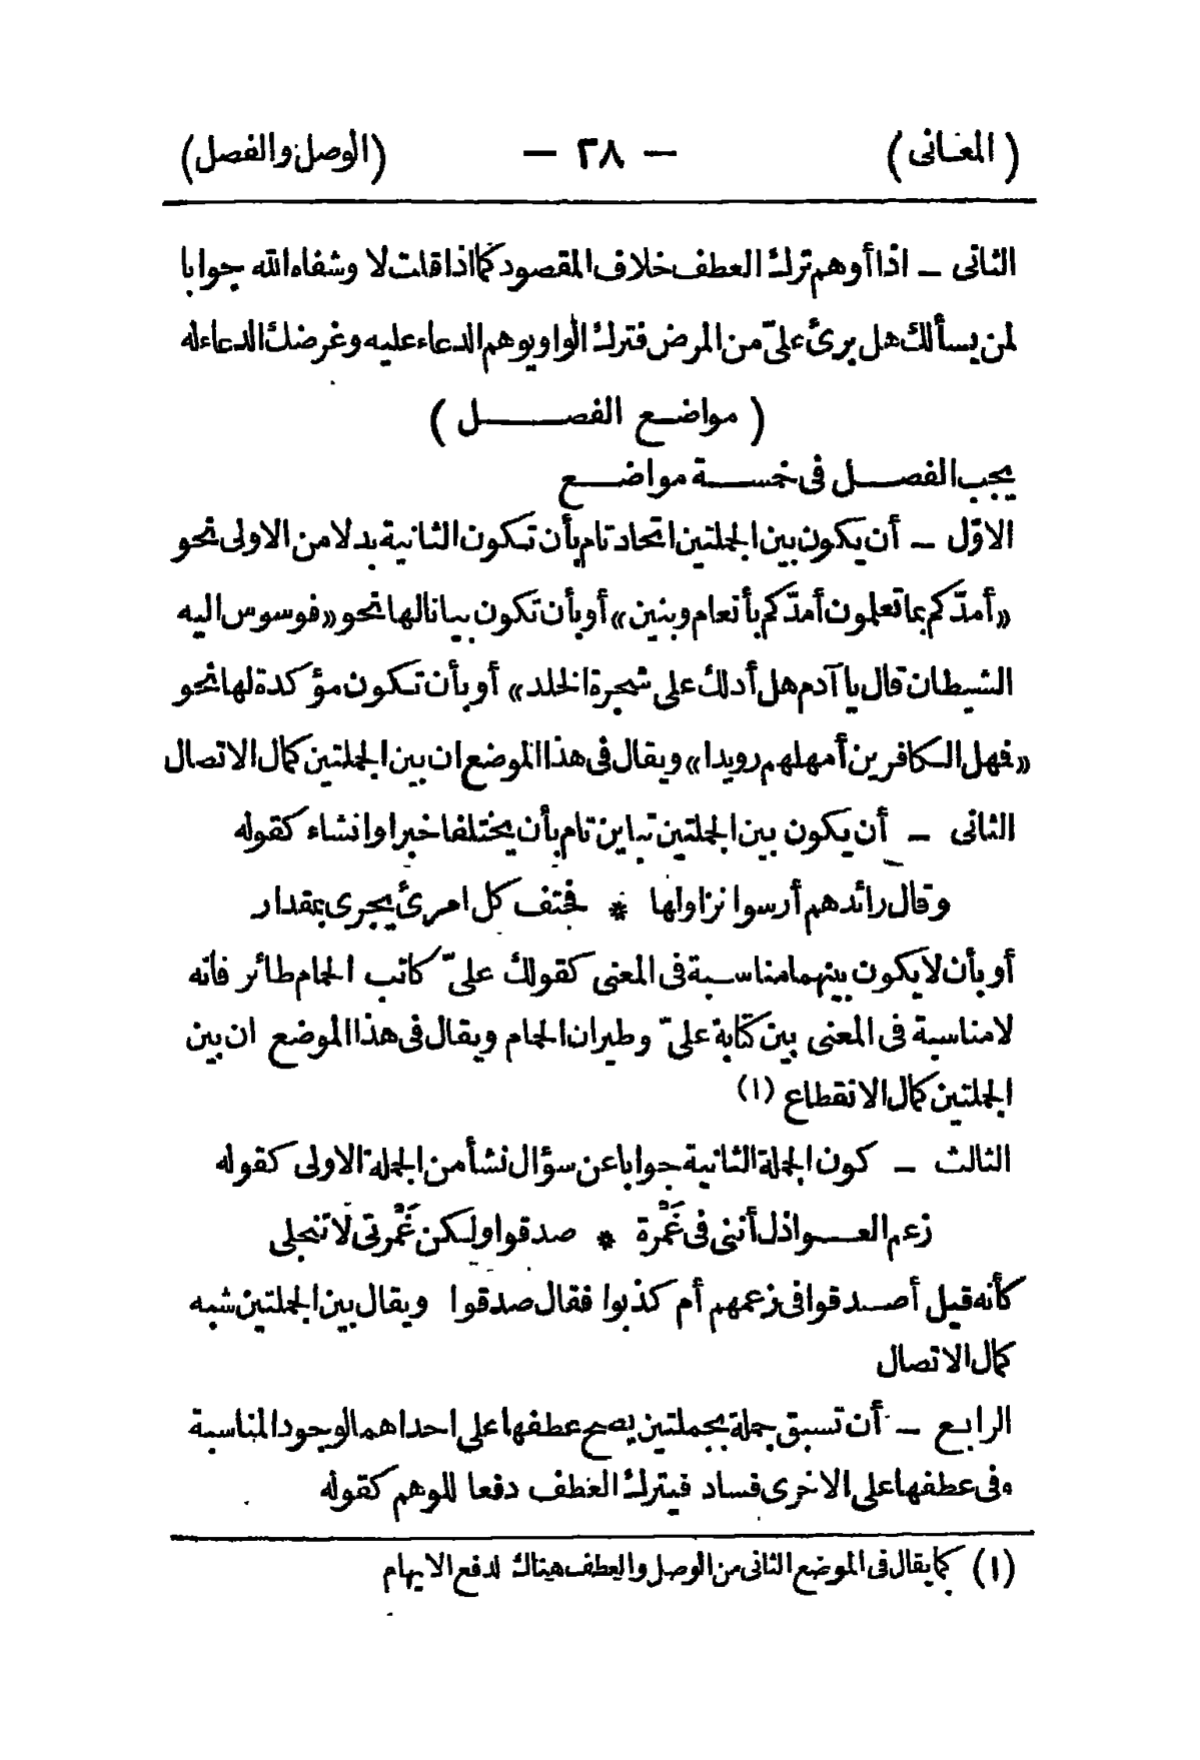 (المعانى) — ٣٨ — (الوصل والفصل)
الثانى – اذا أوهم ترك العطف خلاف المقصود كما اذا قلت لا وشفاه الله جوابا
لمن يسألك هل برئ علىّ من المرض فترك الواو يوهم الدعاء عليه وغرضك الدعاء له
(مواضع الفصل)
يجب الفصل فى خمسة مواضع
الاوّل – أن يكون بين الجملتين اتحاد تام بأن تكون الثانية بدلا من الاولى نحو
«أمدّكم بما تعلمون أمدّكم بأنعام وبنين» أو بأن تكون بيانا لها نحو «فوسوس اليه
الشيطان قال يا آدم هل أدلك على شجرة الخلد» أو بأن تكون مؤكدة لها نحو
«فهل الكافرين أمهلهم رويدا» ويقال فى هذا الموضع ان بين الجملتين كمال الاتصال
الثانى – أن يكون بين الجملتين تباين تام بأن يختلفا خبرا وانشاء كقوله
وقال رائدهم أرسوا نزاولها * فحتف كل امرئ يجرى بمقدار
أو بأن لا يكون بينهما مناسبة فى المعنى كقولك علىّ كاتب الحمام طائر فانه
لا مناسبة فى المعنى بين كتابة علىّ وطيران الحمام ويقال فى هذا الموضع ان بين
الجملتين كمال الانقطاع (١)
الثالث – كون الجملة الثانية جوابا عن سؤال نشأ من الجملة الاولى كقوله
زعم العواذل أننى فى غَمْرة * صدقوا ولكن غَمْرتى لَا تنجلى
كأنه قيل أصدقوا فى زعمهم أم كذبوا فقال صدقوا ويقال بين الجملتين شبه
كمال الاتصال
الرابع – أن تسبق جملة بجملتين يصح عطفها على احداهما لوجود المناسبة
وفى عطفها على الاخرى فساد فيترك العطف دفعا للوهم كقوله
(١) كما يقال فى الموضع الثانى من الوصل والعطف هناك لدفع الايهام